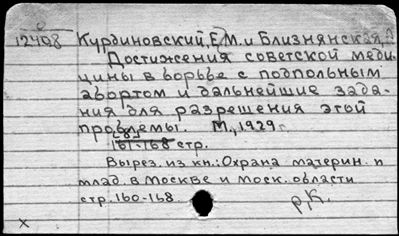 12408 Курдиновский, Е.М. и Близнянская, А
Достижения советской меди-
цины в борьбе с подпольным
абортом и дальнейшие зада-
ния для разрешения этой
проблемы. М., 1929 г.
161-168 стр.
Вырез. из кн.: Охрана материн. и
млад. в Москве и моск. области
стр. 160-168.
р.К.
х